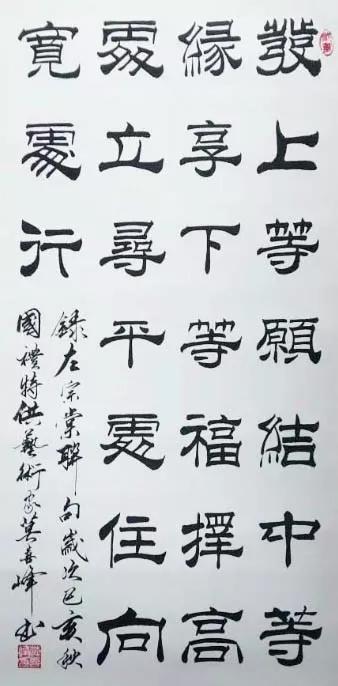 發上等願結中等
緣享下等福擇高
處立尋平處住向
寬處行
錄左宗棠聯句歲次己亥秋
國禮特供藝術家莫峰书